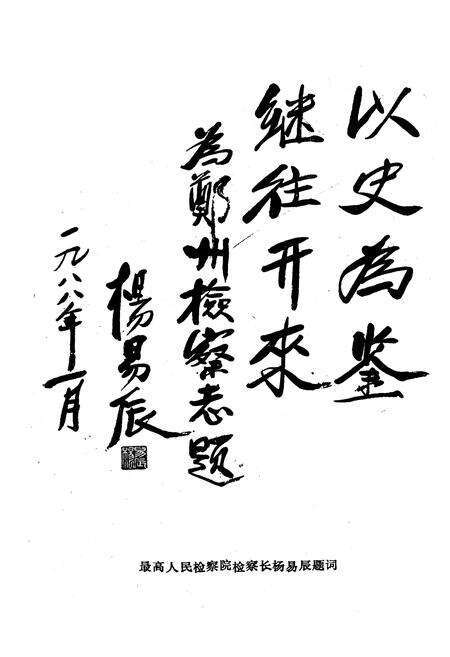 以史為鉴
继往开來
為鄭州檢察志題
楊易辰
一九八八年一月
最高人民检察院检察长杨易辰题词